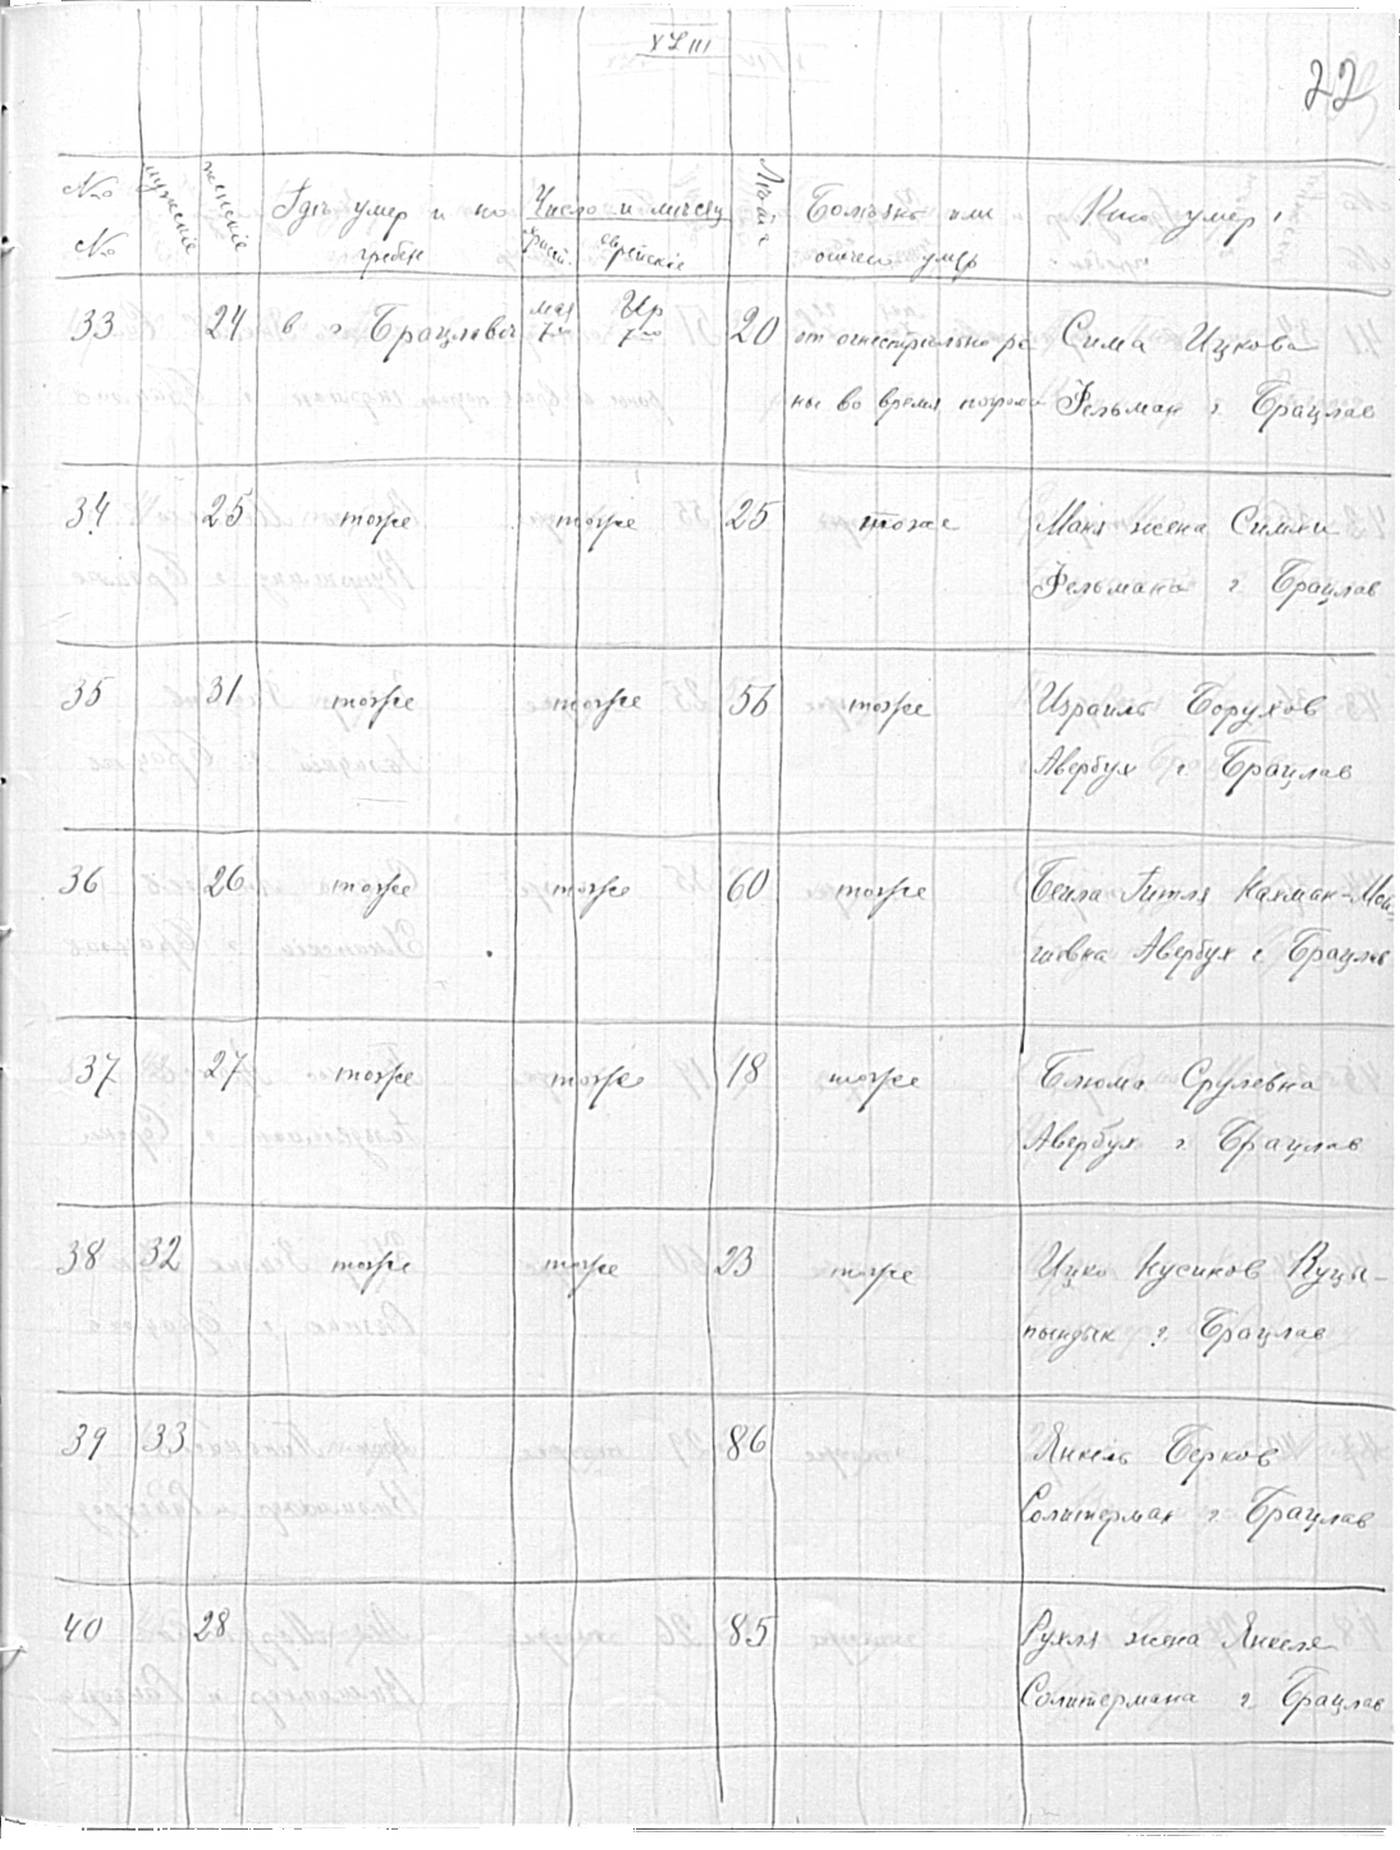 XLIII
22
№ мужскіе женскіе Гдѣ умер и по Число и мѣсяц Лѣта Болѣзнь или Кто умер
№ гребен христ. еврейскіе отчего умер
33 24 в г Брацлавѣ мая 7го Ир 7го 20 от огнестрѣльно ра Сима Ицкова
ны во время погрома Фельман г Брацлав
34 25 тоже тоже 25 тоже Маня жена Симхи
Фельмана г Брацлав
35 31 тоже тоже 56 тоже Израиль Борухов
Авербух г. Брацлав
36 26 тоже тоже 60 тоже Бейла Гитля Калман-Мой-
шевна Авербух г Брацлав
37 27 тоже тоже 18 тоже Блюма Срулевна
Авербух г. Брацлав
38 32 тоже тоже 23 тоже Ицко Кусиков Вуцы-
пындык г. Брацлав
39 33 86 Янкель Берков
Солитерман г Брацлав
40 28 85 Рухля жена Янкеля
Солитермана г. Брацлав